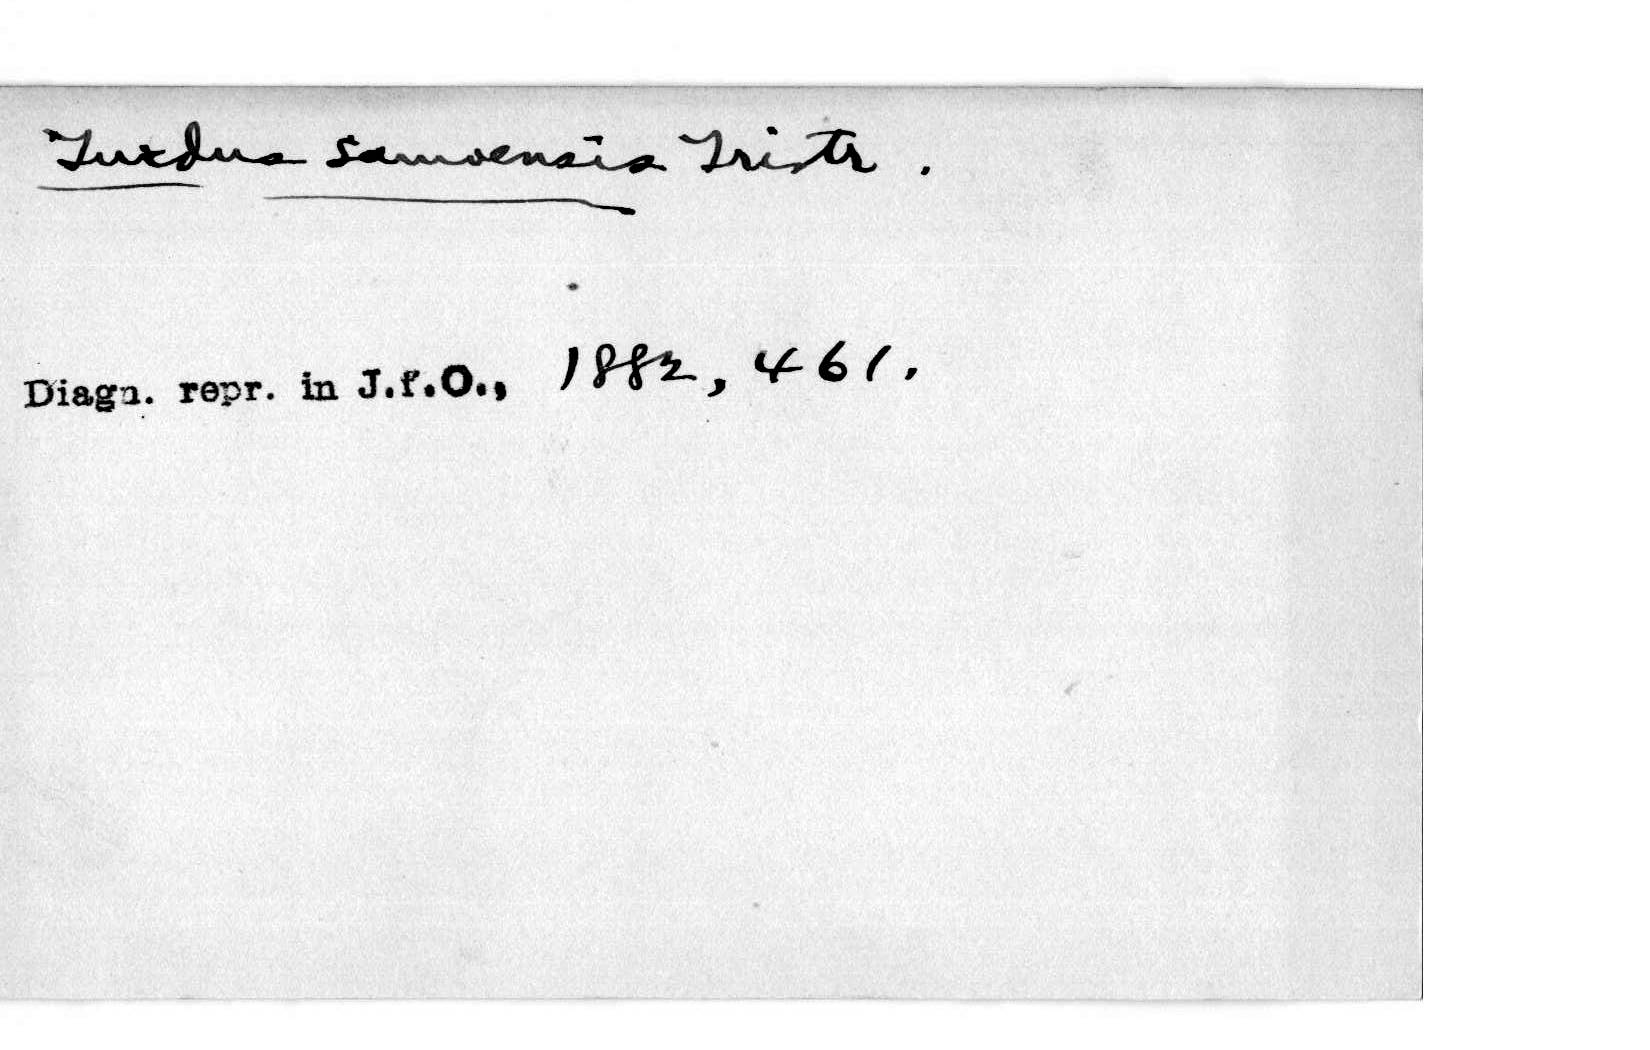 Turdus samoensis Tristr.
Diagn. repr. in J.f.O., 1882, 461.